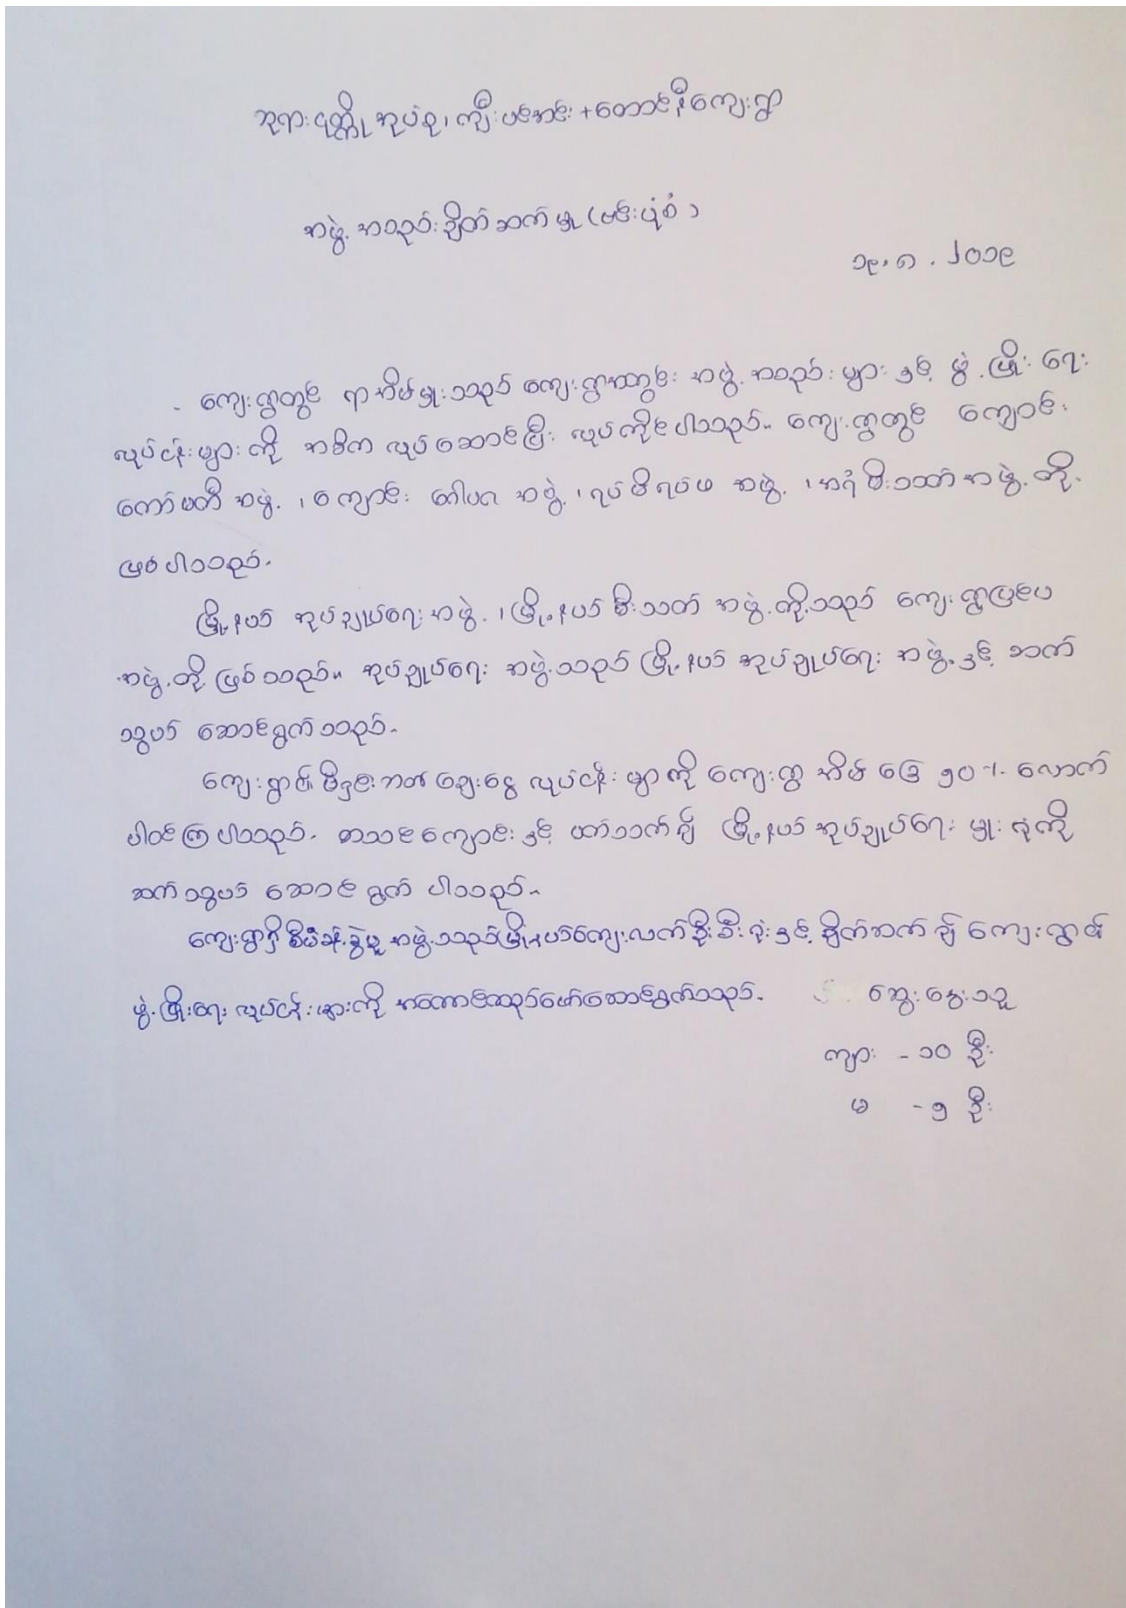 ဘုရားငုတ္တိုအုပ်စု၊ ကျီးပင်အင်း+တောင်နီကျေးရွာ
အဖွဲ့အစည်းချိတ်ဆက်မှု (ဗင်းပုံစံ)
၁၉.၈.၂၀၁၉
- ကျေးရွာတွင် ရာအိမ်မှူးသည် ကျေးရွာတွင်း အဖွဲ့အစည်းများနှင့် ဖွံ့ဖြိုးရေး
လုပ်ငန်းများကို အဓိက လုပ်ဆောင်ပြီး လုပ်ကိုင်ပါသည်။ ကျေးရွာတွင် ကျောင်း
ကော်မတီအဖွဲ့၊ ကျောင်း ဂေါပက အဖွဲ့၊ ရပ်မိရပ်ဖ အဖွဲ့၊ အရံမီးသတ်အဖွဲ့တို့
ဖြစ်ပါသည်။
မြို့နယ် အုပ်ချုပ်ရေးအဖွဲ့၊ မြို့နယ် မီးသတ် အဖွဲ့တို့သည် ကျေးရွာပြင်ပ
အဖွဲ့တို့ ဖြစ်သည်။ အုပ်ချုပ်ရေး အဖွဲ့သည် မြို့နယ် အုပ်ချုပ်ရေး အဖွဲ့နှင့် ဆက်
သွယ် ဆောင်ရွက်သည်။
ကျေးရွာ၏ မိုးစင်း ချေးငွေ လုပ်ငန်းမျာကို ကျေးရွာ အိမ်ခြေ ၅၀ % လောက်
ပါဝင်ကြပါသည်။ စာသင်ကျောင်းနှင့် ပတ်သက်၍ မြို့နယ်အုပ်ချုပ်ရေး မှူးရုံးကို
ဆက်သွယ် ဆောင်ရွက် ပါသည်။
ကျေးရွာရှိ စီမံခန့်ခွဲမှု အဖွဲ့သည် မြို့နယ်ကျေးလက်ဦးစီးရုံးနှင့် ချိတ်ဆက်၍ ကျေးရွာ၏
ဖွံ့ဖြိုးရေး လုပ်ငန်းများကို အကောင်အထည်ဖော်ဆောင်ရွက်သည်။
ဆွေးနွေးသူ
ကျား - ၁၀ ဦး
မ - ၅ ဦး